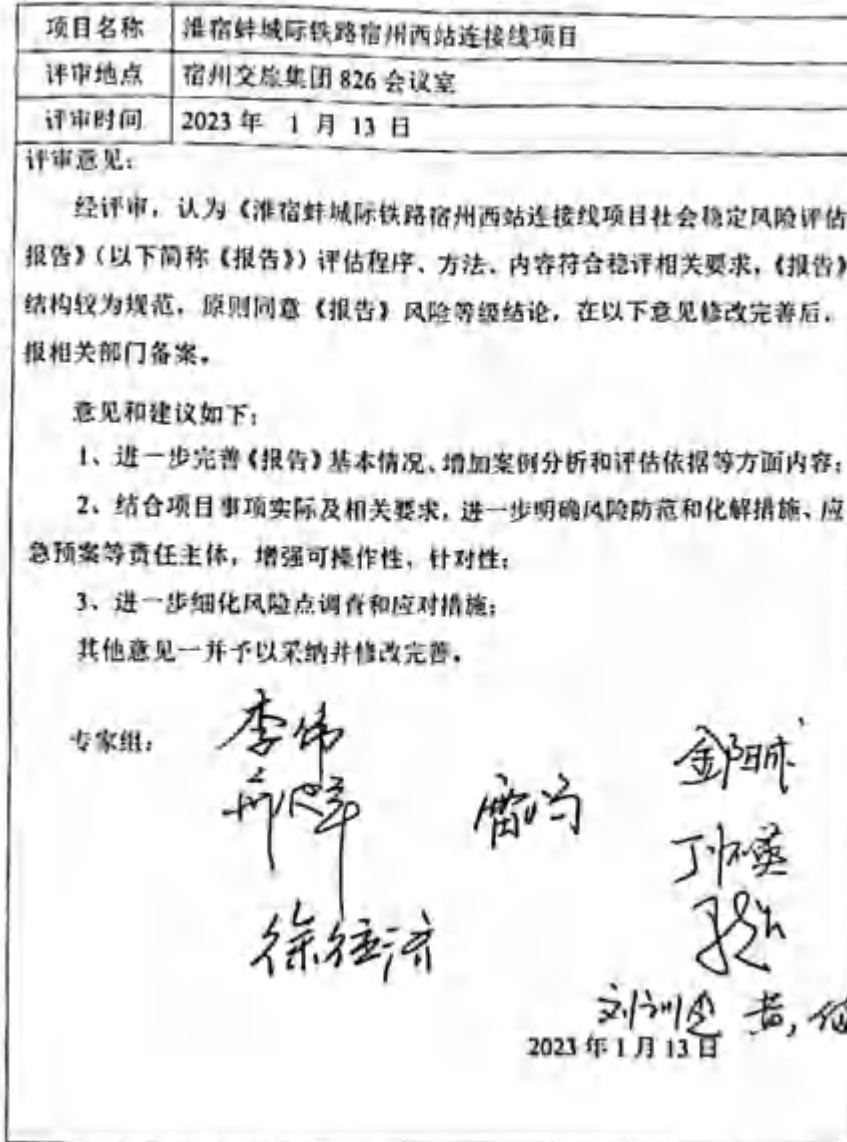 项目名称 淮宿蚌城际铁路宿州西站连接线项目
评审地点 宿州交旅集团 826 会议室
评审时间 2023 年 1 月 13 日
评审意见：
经评审，认为《淮宿蚌城际铁路宿州西站连接线项目社会稳定风险评估
报告》（以下简称《报告》）评估程序、方法、内容符合稳评相关要求，《报告》
结构较为规范，原则同意《报告》风险等级结论，在以下意见修改完善后，
报相关部门备案。
意见和建议如下：
1、进一步完善《报告》基本情况、增加案例分析和评估依据等方面内容；
2、结合项目事项实际及相关要求，进一步明确风险防范和化解措施、应
急预案等责任主体，增强可操作性，针对性；
3、进一步细化风险点调查和应对措施；
其他意见一并予以采纳并修改完善。
专家组： 李伟
2023 年 1 月 13 日